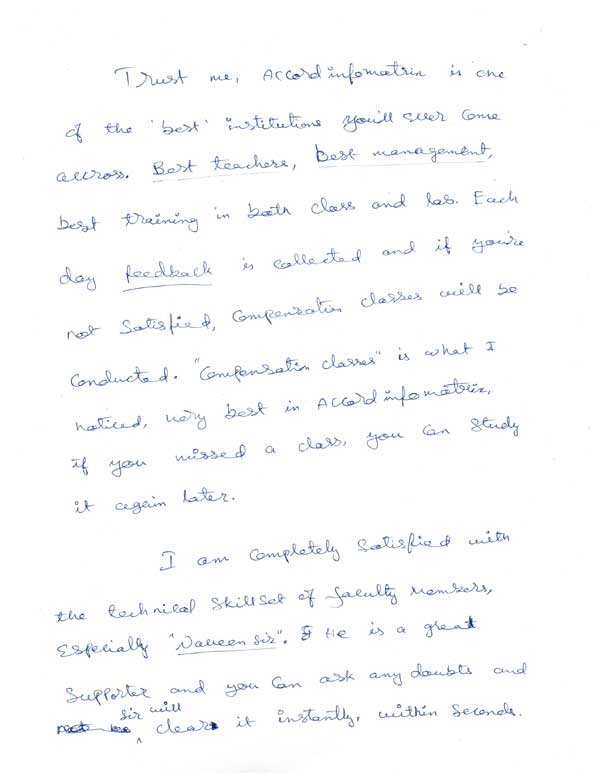 Trust me, Accord infomatrix is one
of the 'best' institutions you'll ever come
accross. Best teachers, Best management,
best training in both class and lab. Each
day feedback is collected and if you're
not satisfied, Compensation classes will be
Conducted. "Compensation Classes" is what I
noticed, very best in Accord infomatrix,
if you missed a class, you can study
it again later.
I am completely satisfied with
the technical skillset of faculty members,
Especially "Naveen sir". He is a great
supporter and you can ask any doubts and
sir will clear it instantly, within seconds.